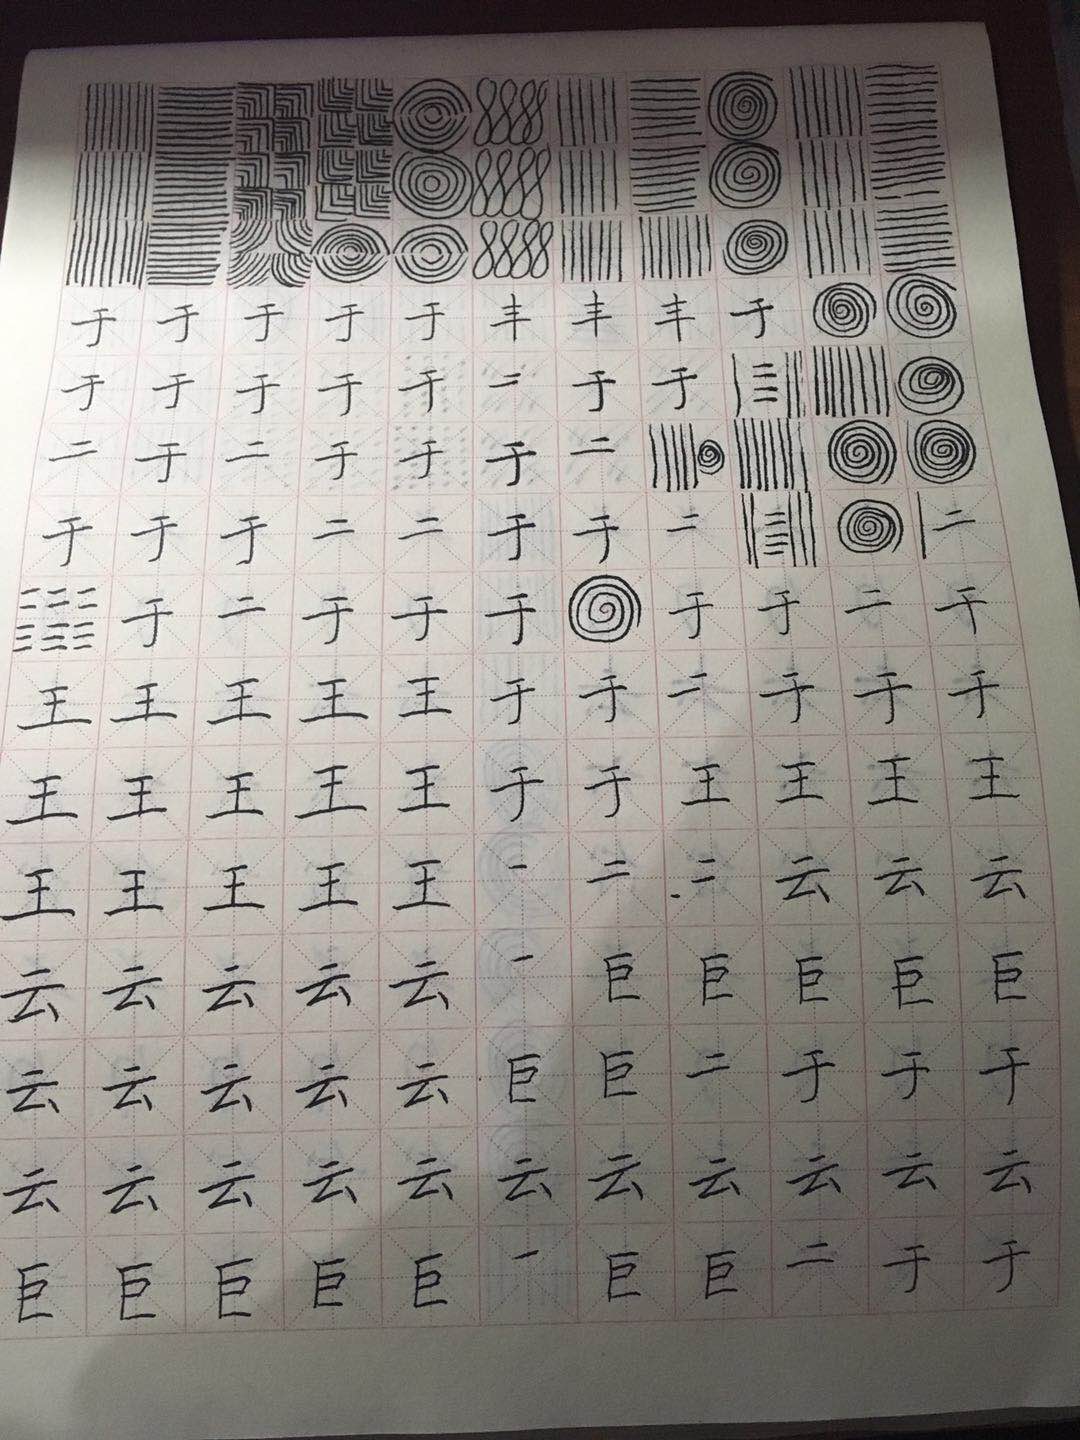 于 于 于 于 于 丰 丰 丰 于
于 于 于 于 于 二 于 于 三
二 于 二 于 于 于 二
于 于 于 二 二 于 于 二 三 二
二 二 二 三 三 三 于 二 于 于 于 于 于 二 于
王 王 王 王 王 于 于 二 于 于 于
王 王 王 王 王 于 于 王 王 王 王
王 王 王 王 王 一 二 二 云 云 云
云 云 云 云 云 一 巨 巨 巨 巨 巨
云 云 云 云 云 巨 巨 二 于 于 于
云 云 云 云 云 云 云 云 云 云 云
巨 巨 巨 巨 巨 一 巨 巨 二 于 于